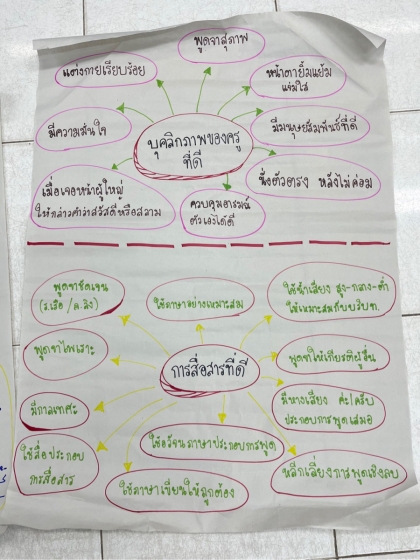 พูดจาสุภาพ
แต่งกายเรียบร้อย
หน้าตายิ้มแย้ม
แจ่มใส
มีความมั่นใจ
บุคลิกภาพของครู
ที่ดี
มีมนุษยสัมพันธ์ที่ดี
เมื่อเจอหน้าผู้ใหญ่
ให้กล่าวคำว่าสวัสดีหรือสลาม
ควบคุมอารมณ์
ตัวเองได้ดี
นั่งตัวตรง หลังไม่ค่อม
พูดจาชัดเจน
(ร.เรือ / ล.ลิง)
ใช้ภาษาอย่างเหมาะสม
ใช้น้ำเสียง สูง-กลาง-ต่ำ
ให้เหมาะสมกับบริบท.
พูดจาไพเราะ
การสื่อสารที่ดี
พูดจาให้เกียรติผู้อื่น
มีกาลเทศะ
มีหางเสียง ค่ะ/ครับ
ประกอบการพูดเสมอ
ใช้สื่อประกอบ
การสื่อสาร
ใช้อวัจนภาษาประกอบการพูด
ใช้ภาษาเขียนให้ถูกต้อง
หลีกเลี่ยงการพูดเชิงลบ